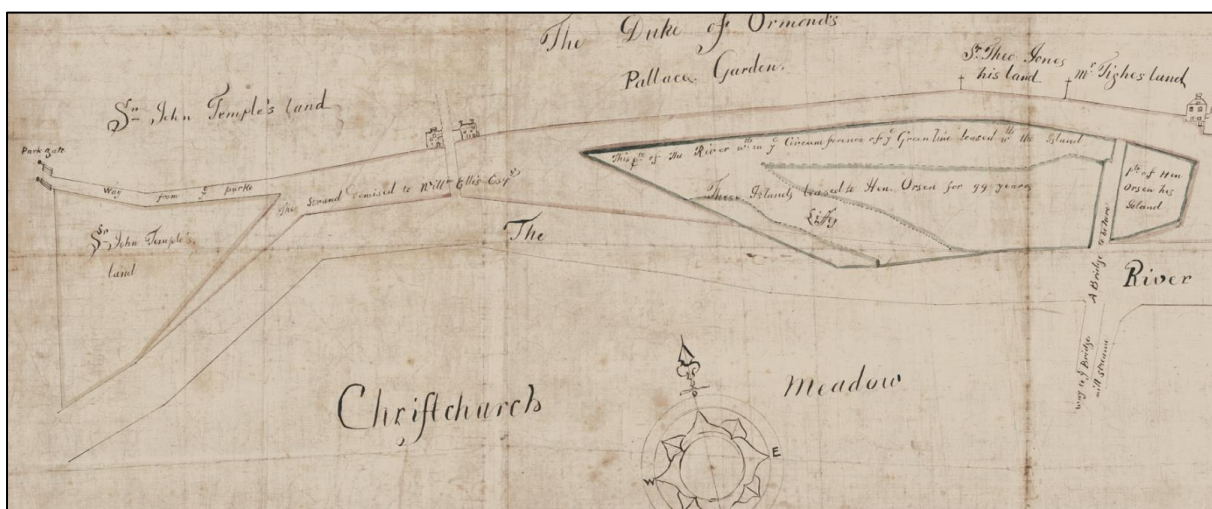 The Duke of Ormonds
Pallace Garden.
Sr. Theo Jones
his land
Mr. Tighes land
Sr. John Temple's land
Park gate
Way from ye parke
The Strand demised to Willm Ellis Esqr.
This pte of the River wth in ye Circumference of ye Green line leased wth the Island
These Islands leased to Hen. Orsen for 99 years
Liffy
pte of Hen
Orsen his
Island
Sr. John Temple's
land
The
River
A Bridge to before
Way to ye Bridge
mill streame
Christchurch
Meadow
W
E